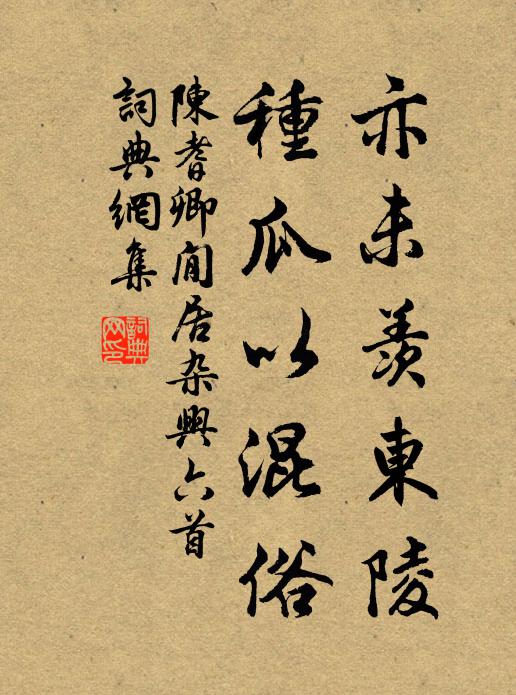 亦未羨東陵
種瓜以混俗
陳耆卿閒居杂興六首
詞典網集
詞典
网印